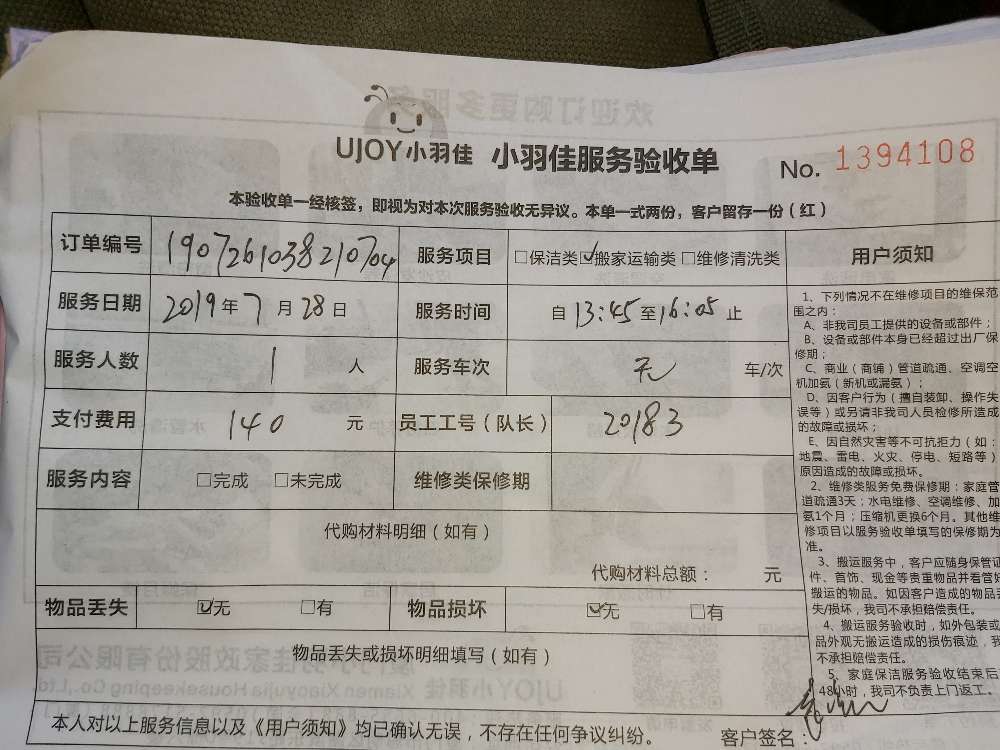 UJOY小羽佳 小羽佳服务验收单 No. 1394108
本验收单一经核签，即视为对本次服务验收无异议。本单一式两份，客户留存一份（红）
订单编号 1907261038210704 服务项目 □保洁类☑搬家运输类□维修清洗类
服务日期 2019年7月28日 服务时间 自13:45至16:05止
服务人数 1人 服务车次 无 车/次
支付费用 140 元 员工工号（队长） 20183
服务内容 □完成 □未完成 维修类保修期
代购材料明细（如有）
代购材料总额： 元
物品丢失 ☑无 □有 物品损坏 ☑无 □有
物品丢失或损坏明细填写（如有）
本人对以上服务信息以及《用户须知》均已确认无误，不存在任何争议纠纷。 客户签名：
用户须知
1、下列情况不在维修项目的维保范
围之内：
A、非我司员工提供的设备或部件；
B、设备或部件本身已经超过出厂保
修期；
C、商业（商铺）管道疏通、空调空
机加氨（新机或漏氨）；
D、因客户行为（擅自装卸、操作失
误等）或另请非我司人员检修所造成
的故障或损坏；
E、因自然灾害等不可抗拒力（如：
地震、雷电、火灾、停电、短路等）
原因造成的故障或损坏。
2、维修类服务免费保修期：家庭管
道疏通3天；水电维修、空调维修、加
氨1个月；压缩机更换6个月。其他维
修项目以服务验收单填写的保修期为
准。
3、搬运服务中，客户应随身保管证
件、首饰、现金等贵重物品并看管好
搬运的物品。如因客户造成的物品丢
失/损坏，我司不承担赔偿责任。
4、搬运服务验收时，如外包装或
品外观无搬运造成的损伤痕迹，我
不承担赔偿责任。
5、家庭保洁服务验收结束后
48小时，我司不负责上门返工。